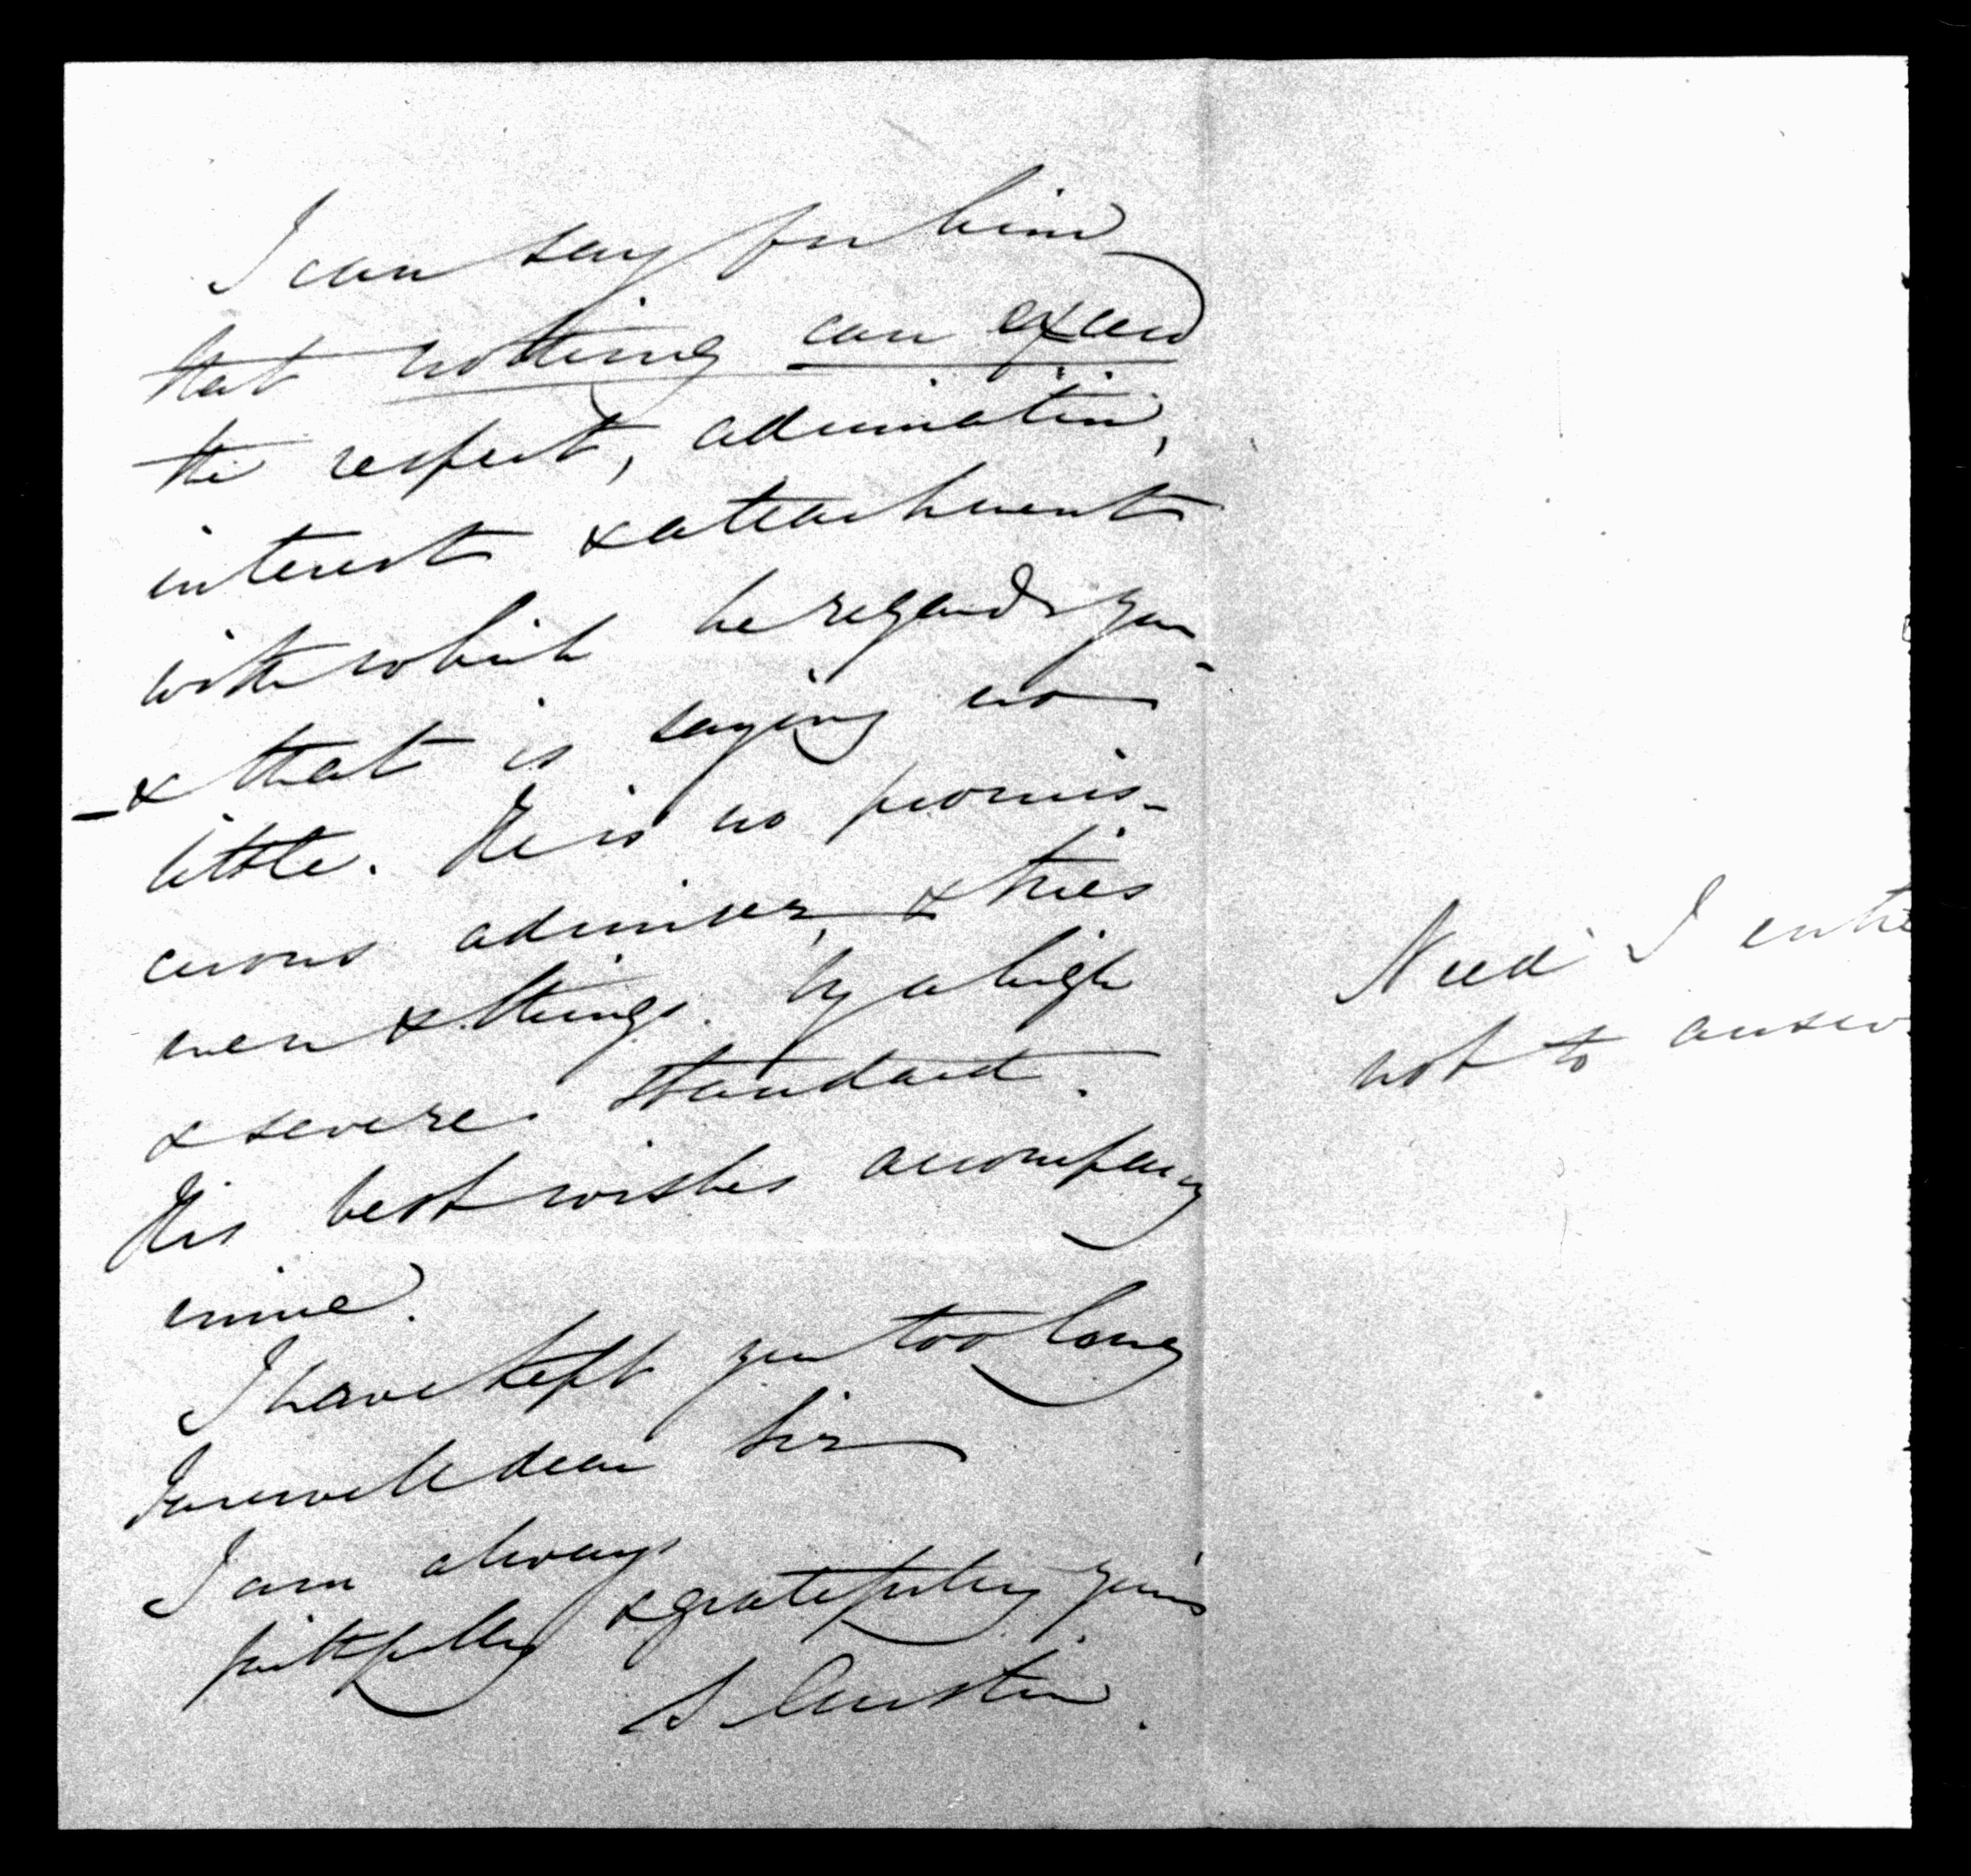 I can say for him
that nothing can exceed
the respect, admiration,
interest & attachment
with which he regards you -
- & that is saying no
little. He is no promis-
cuous admirer, & tries
men & things by a high
& severe standard.
His best wishes accompany
mine.
I have kept you too long
Farewell dear Sir
I am always
faithfully & gratefully yours
S Austin.
Need I entre
not to answ